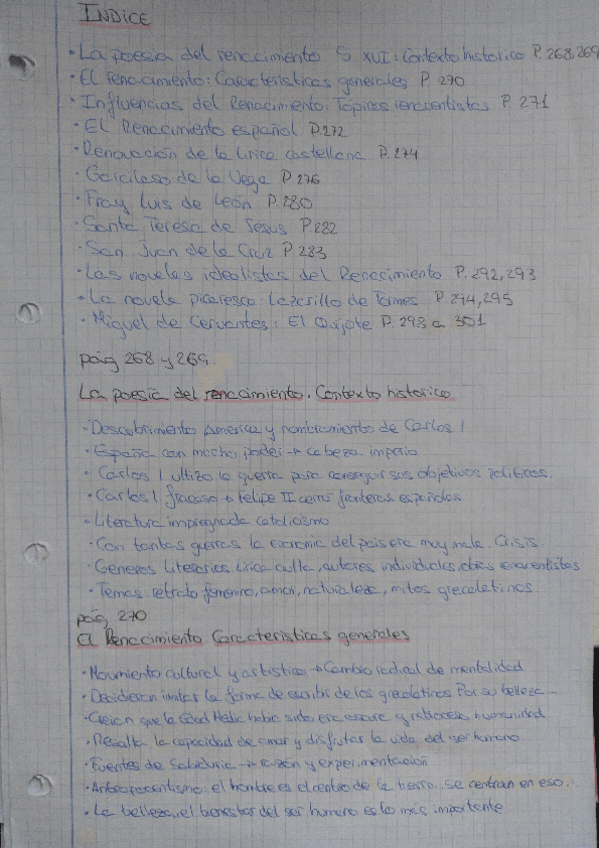 INDICE
· La poesia del renacimiento S XVI: Contexto historico P. 268,269
· El renacimiento: Caracteristicas generales P. 270
· Influencias del Renacimiento: Topicos renacentistas P. 271
· El Renacimiento español P.272
· Renovación de la lirica castellana P.274
· Garcilaso de la Vega P.276
· Fray Luis de León P.280
· Santa Teresa de Jesus P.282
· San Juan de la Cruz P.283
· Las novelas idealistas del Renacimiento P.292,293
· La novela picaresca: Lazarillo de Tormes P.294,295
· Miguel de Cervantes: El Quijote P.298 a 301
pág 268 y 269
La poesía del renacimiento. Contexto historico
· Descubrimiento America y nombramiento de Carlos I
· España con mucho poder → cabeza imperio
· Carlos I utilizo la guerra para conseguir sus objetivos politicos.
· Carlos I fracaso → Felipe II cerró fronteras españolas
· Literatura impregnada catolicismo
· Con tantas guerras la economia del pais era muy mala. Crisis.
· Generos Literarios: Lirica culta, autores individuales, obras renacentistas
· Temas: retrato femenino, amor, naturaleza, mitos grecolatinos.
pág 270
El Renacimiento Caracteristicas generales
· Movimiento cultural y artistico → Cambio radical de mentalidad
· Decidieron imitar la forma de escribir de los grecolatinos Por su belleza
· Creian que la Edad Media habia sido era oscura y retroceso humanidad
· Resalta la capacidad de amar y disfrutar la vida del ser humano
· Fuentes de Sabiduria → razón y experimentación
· Antropocentismo: el hombre es el centro de la tierra. Se centran en eso.
· La belleza, el bienestar del ser humano es lo más importante